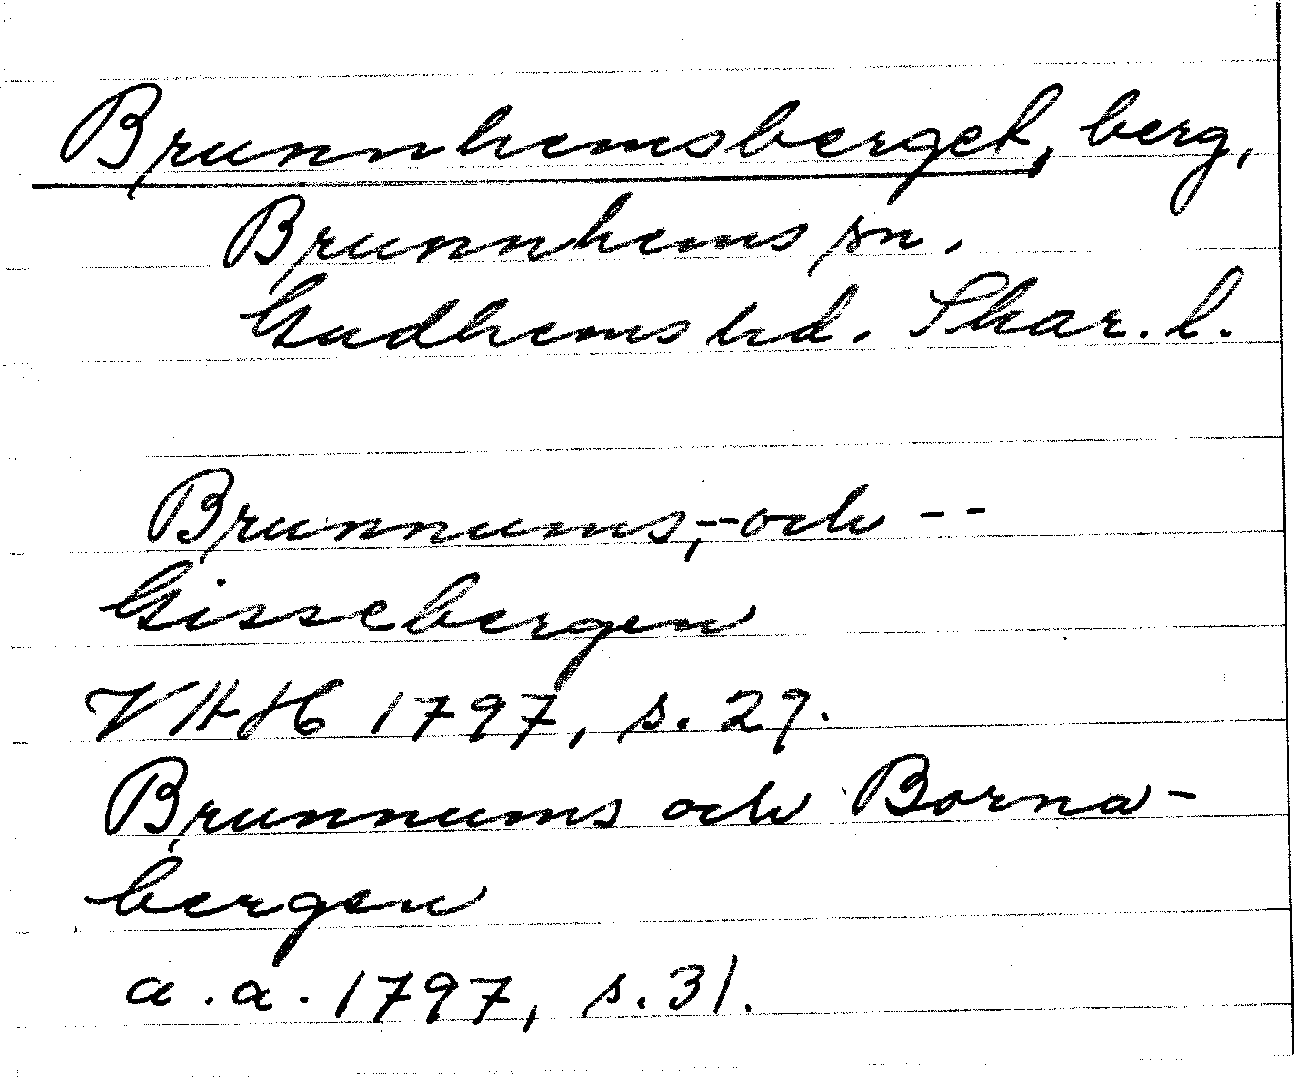 Brunnhemsberget, berg,
Brunnhems sn.
Gudhems hd. Skar. l.
Brunnums, -- och --
Gissebergen
VHH 1797, s. 29.
Brunnums och Borna-
bergen
a. a. 1797, s. 31.